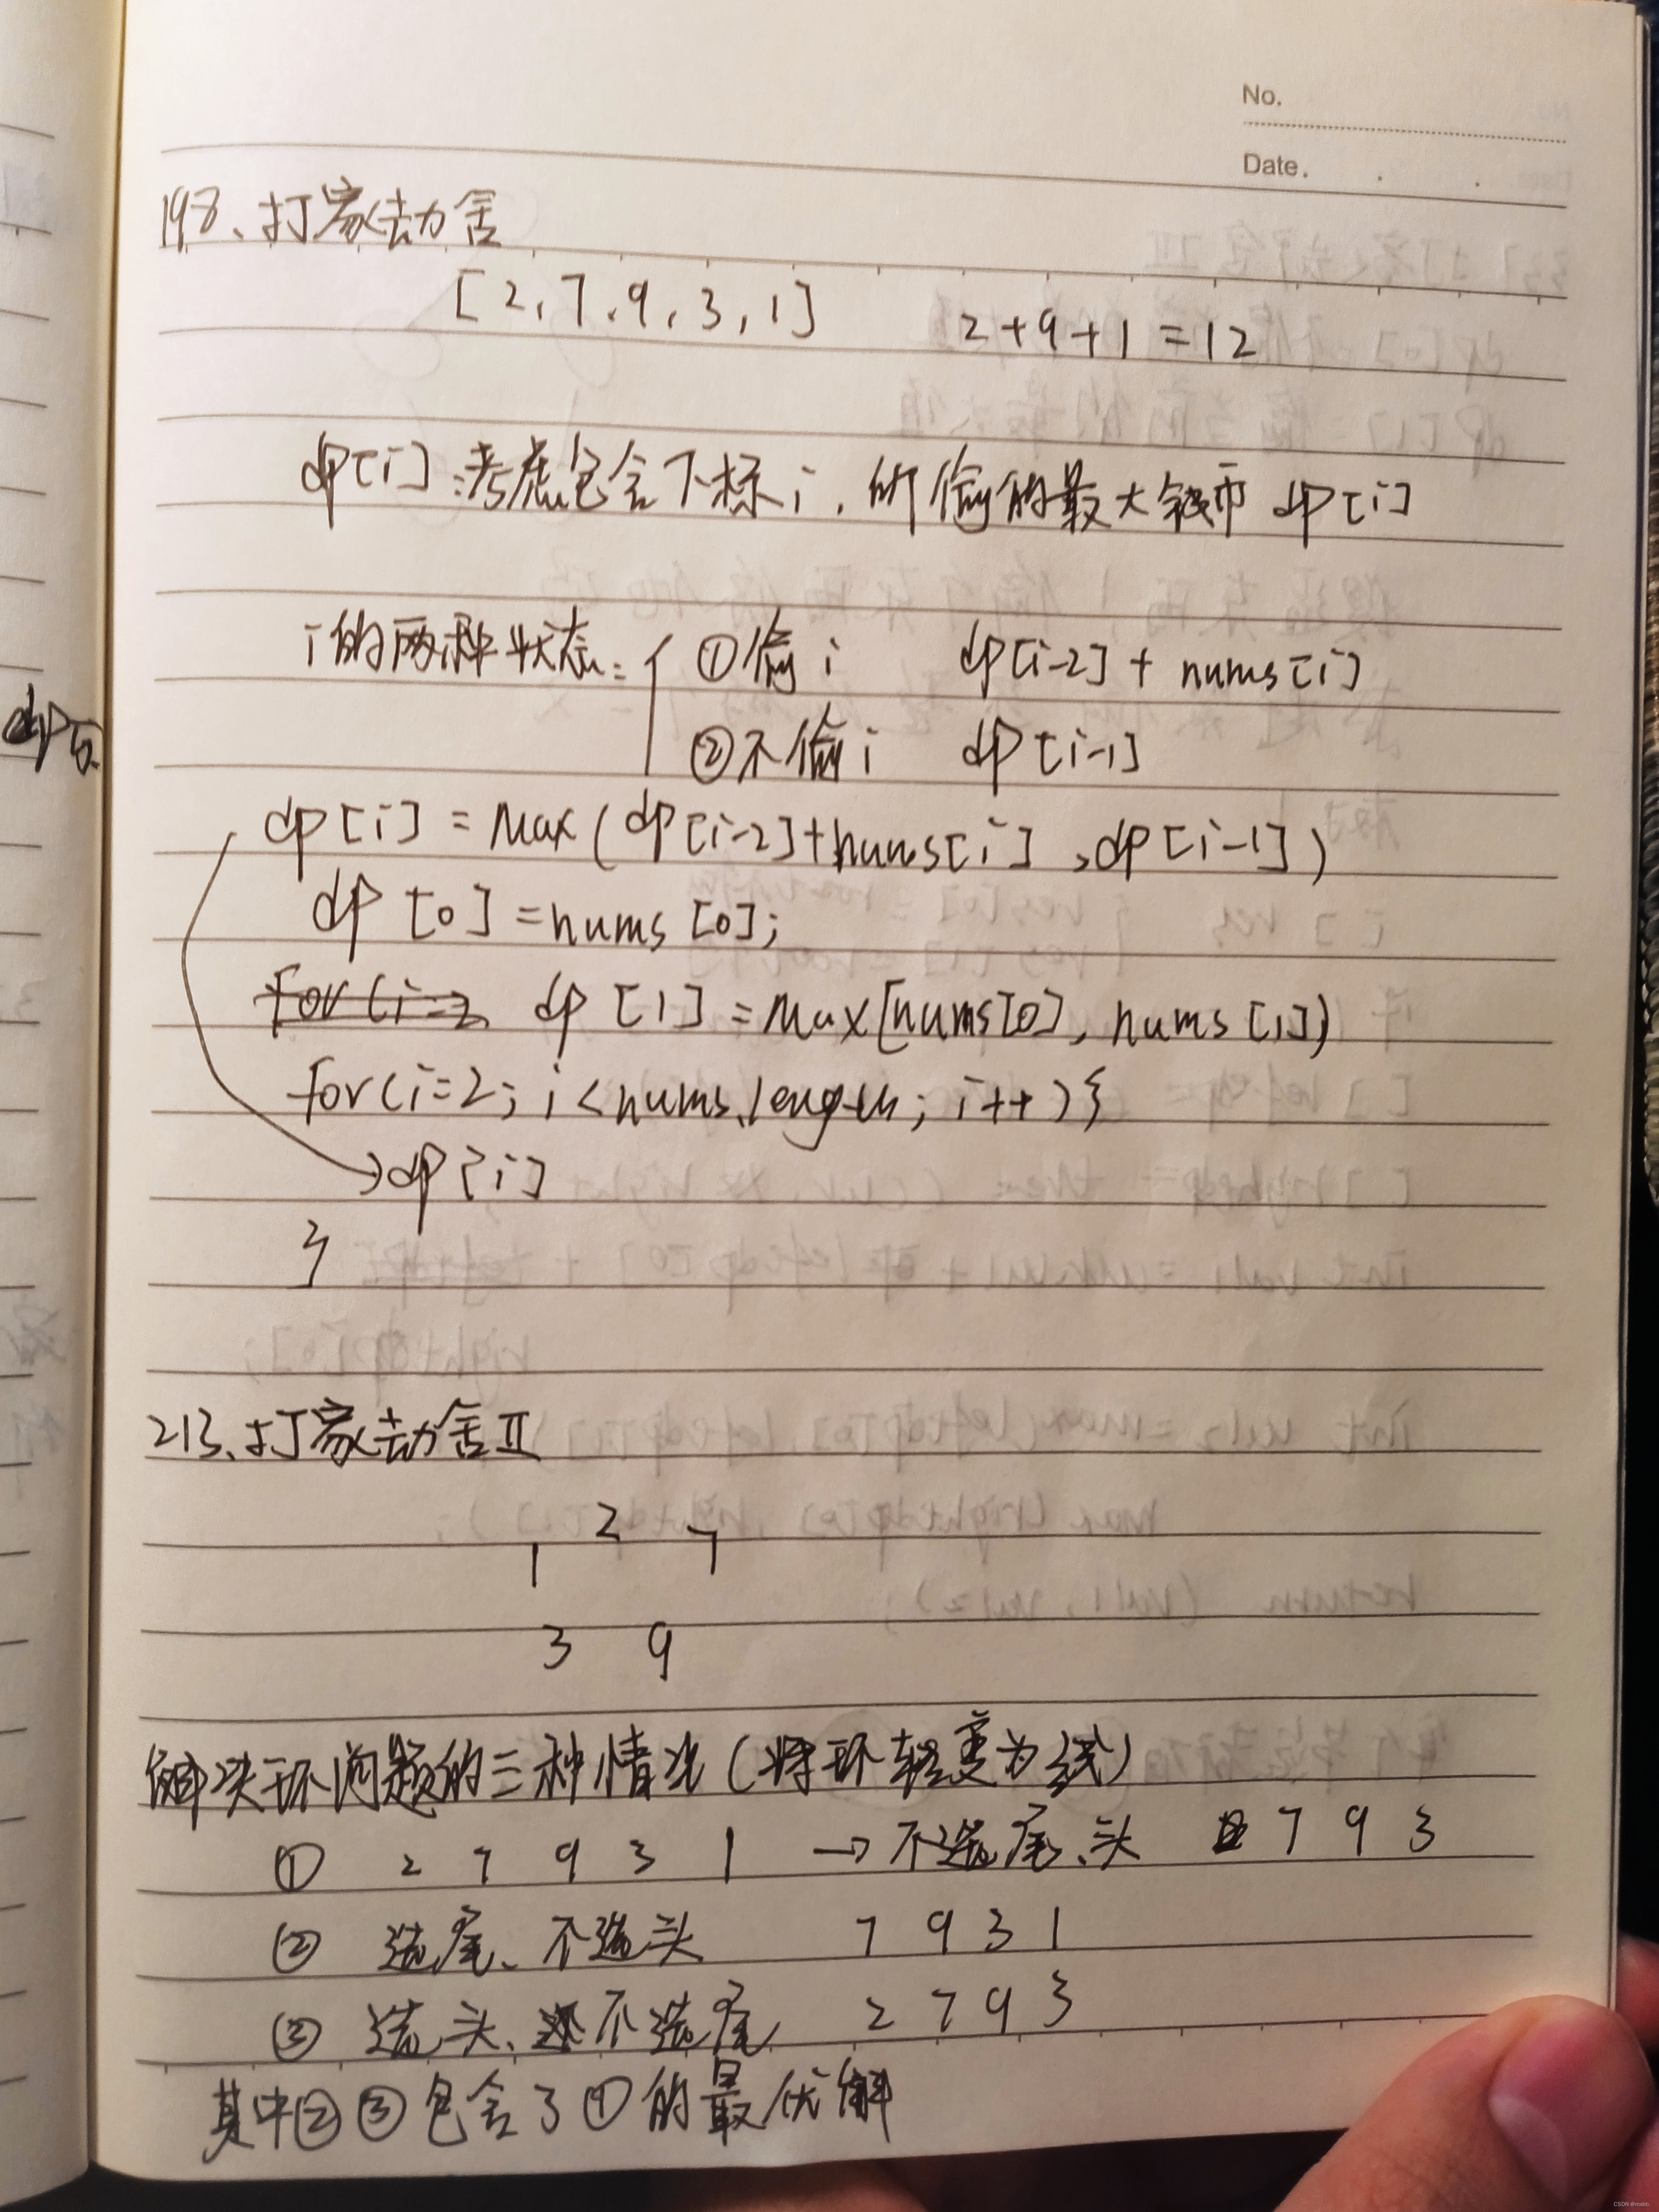 No.
Date.
198、打家劫舍
[2,7,9,3,1] 2+9+1=12
dp[i]:考虑包含下标i,所偷的最大钱币 dp[i]
i的两种状态: { ①偷i dp[i-2] + nums[i]
②不偷i dp[i-1]
dp[i] = Max(dp[i-2]+nums[i],dp[i-1])
dp[0]=nums[0];
for(i=2 dp[1]=Max[nums[0],nums[1])
for(i=2;i<nums.length;i++){
→dp[i]
}
213、打家劫舍Ⅱ
2
1 7
3 9
解决环问题的三种情况(将环转变为线)
① 2 7 9 3 1 → 不选尾、头 7 9 3
② 选尾、不选头 7 9 3 1
③ 选头、不选尾 2 7 9 3
其中②③包含了①的最优解
CSDN